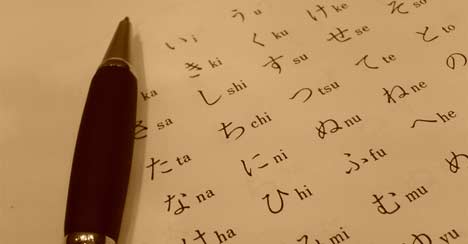 い i う u
ka き ki く ku け ke
さ sa し shi す su せ se そ so
た ta ち chi つ tsu て te と to
な na に ni ぬ nu ね ne の
ha ひ hi ふ fu へ he
mi む mu め
yu